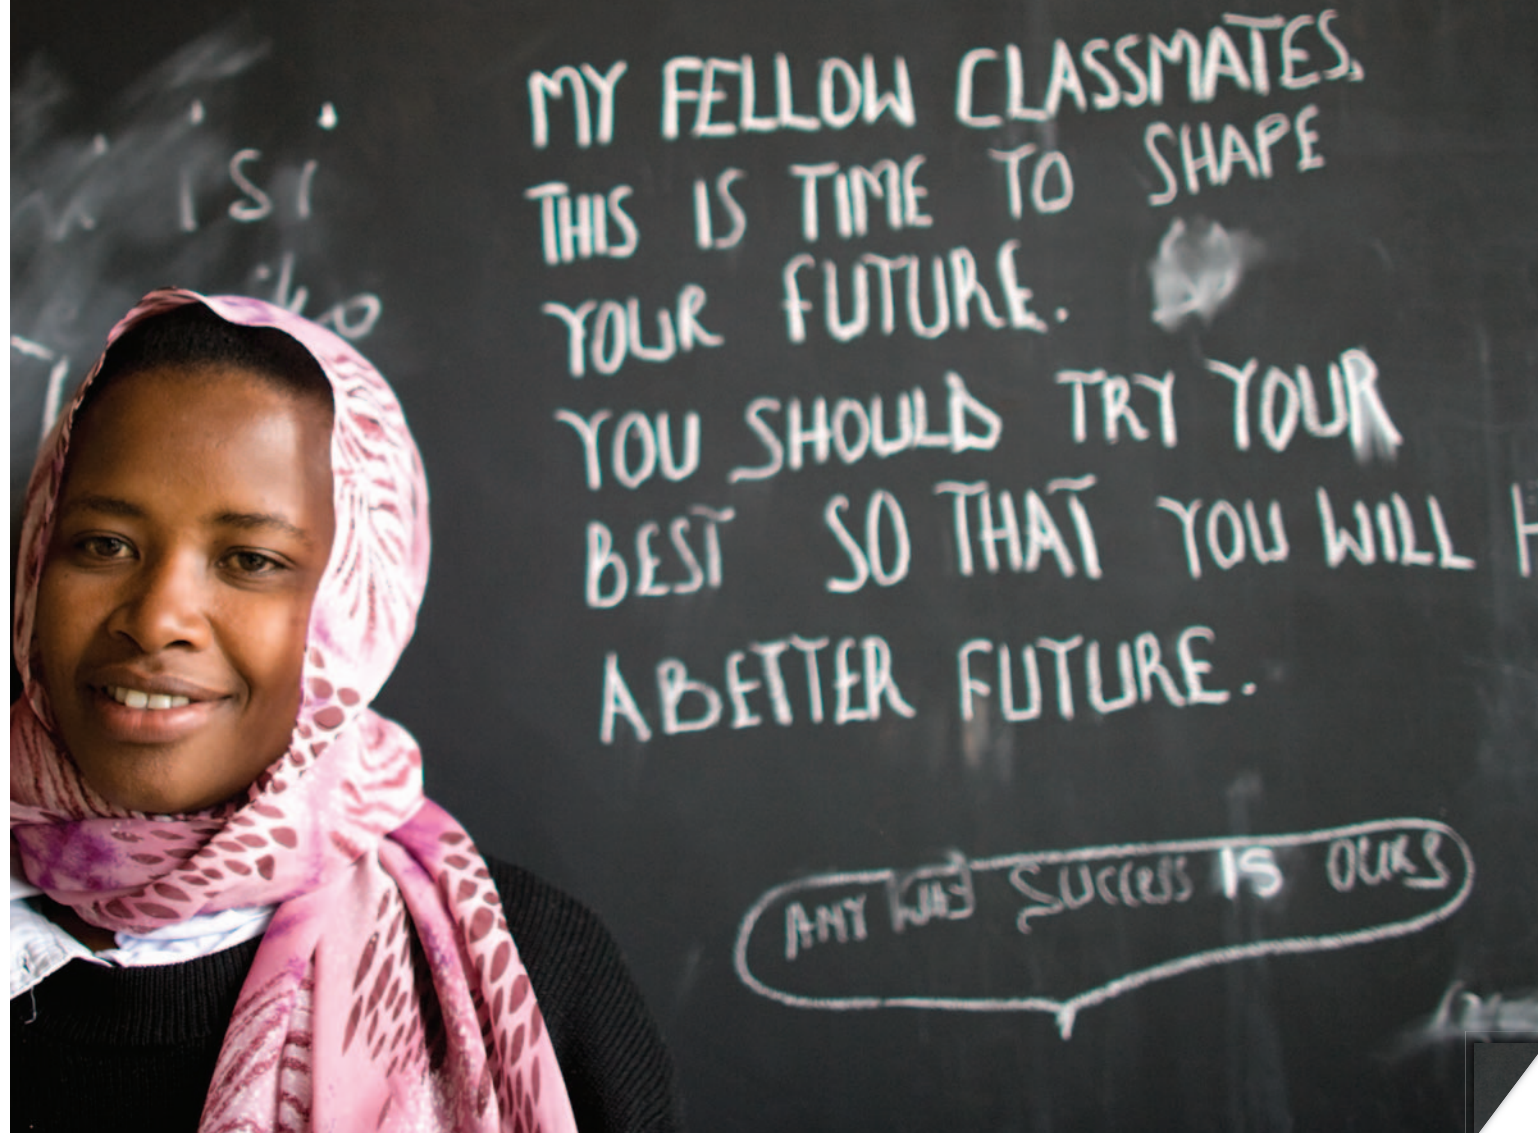 MY FELLOW CLASSMATES,
THIS IS TIME TO SHAPE
YOUR FUTURE.
YOU SHOULD TRY YOUR
BEST SO THAT YOU WILL H
A BETTER FUTURE.
ANY WAY SUCCESS IS OURS